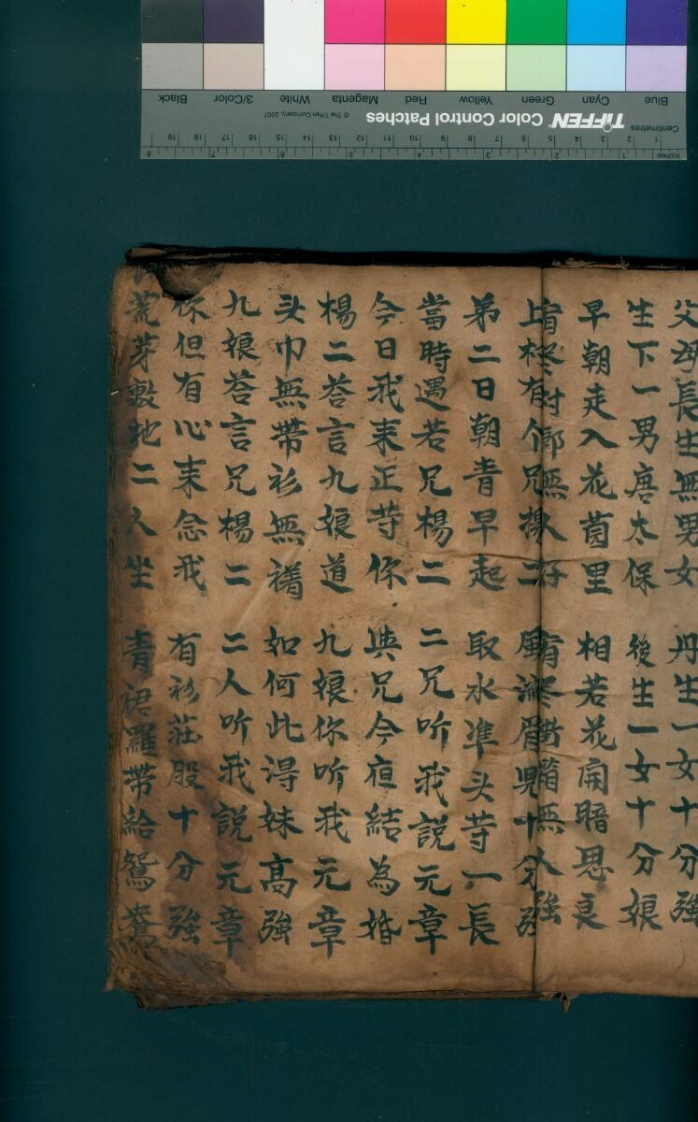 父母長生無男女 丹生一女十分強
生下一男唐太保 後生一女十分娘
早朝走入花茵里 相若花開暗思良
上村有个兄楊二 風流眉見十分強
第二日朝青早起 取水準头荨一長
當時遇若兄楊二 二兄听我説元章
今日我来正荨你 與兄今夜結為婚
楊二荅言九娘道 九娘你听我元章
头巾無帶衫無褵 如何此淂妹高強
九娘荅言兄楊二 二人听我説元章
你但有心来念我 有衫莊股十分強
荒芽敷地二人坐 青裙羅帶給鴛鴦
Blue Cyan Green Yellow Red Magenta White 3/Color Black
TIFFEN Color Control Patches © The Tiffen Company, 2007
Centimetres 1 2 3 4 5 6 7 8 9 10 11 12 13 14 15 16 17 18 19
Inches 1 2 3 4 5 6 7 8